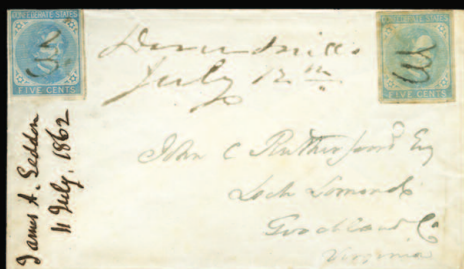 CONFEDERATE STATES
FIVE CENTS
CONFEDERATE STATES
FIVE CENTS
Mills
July 12th
James A. Seddon
11 July, 1862
John C Rutherfoord Esq
Loch Lomond
Goochland Co
Virginia